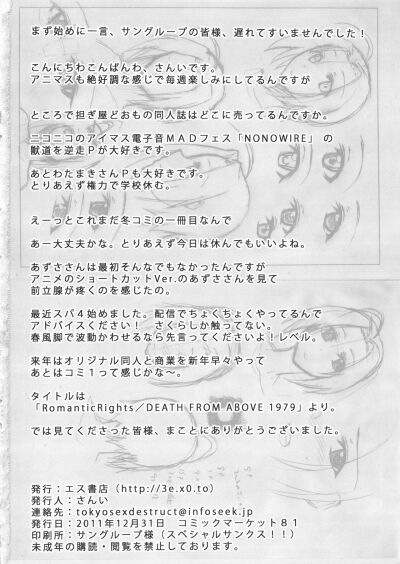 まず始めに一言、サングループの皆様、遅れてすいませんでした!
こんにちわこんばんわ、さんいです。
アニマスも絶好調な感じで毎週楽しみにしてるんですが
ところで担ぎ屋どおもの同人誌はどこに売ってるんですか。
ニコニコのアイマス電子音MADフェス「NONOWIRE」 の
獣道を逆走Pが大好きです。
あとわたまきさんPも大好きです。
とりあえず権力で学校休む。
えーっとこれまだ冬コミの一冊目なんで
あー大丈夫かな。とりあえず今日は休んでもいいよね。
あずささんは最初そんなでもなかったんですが
アニメのショートカットVer.のあずささんを見て
前立腺が疼くのを感じたの。
最近スパ4始めました。配信でちょくちょくやってるんで
アドバイスください! さくらしか触ってない。
春風脚で波動かわせるなら先言ってくださいよ!レベル。
来年はオリジナル同人と商業を新年早々やって
あとはコミ1って感じかな~。
タイトルは
「RomanticRights/DEATH FROM ABOVE 1979」より。
では見てくださった皆様、まことにありがとうございました。
発行:エス書店(http://3e.x0.to)
発行人:さんい
連絡先:tokyosexdestruct@infoseek.jp
発行日:2011年12月31日 コミックマーケット81
印刷所:サングループ様(スペシャルサンクス!!)
未成年の購読・閲覧を禁止しております。